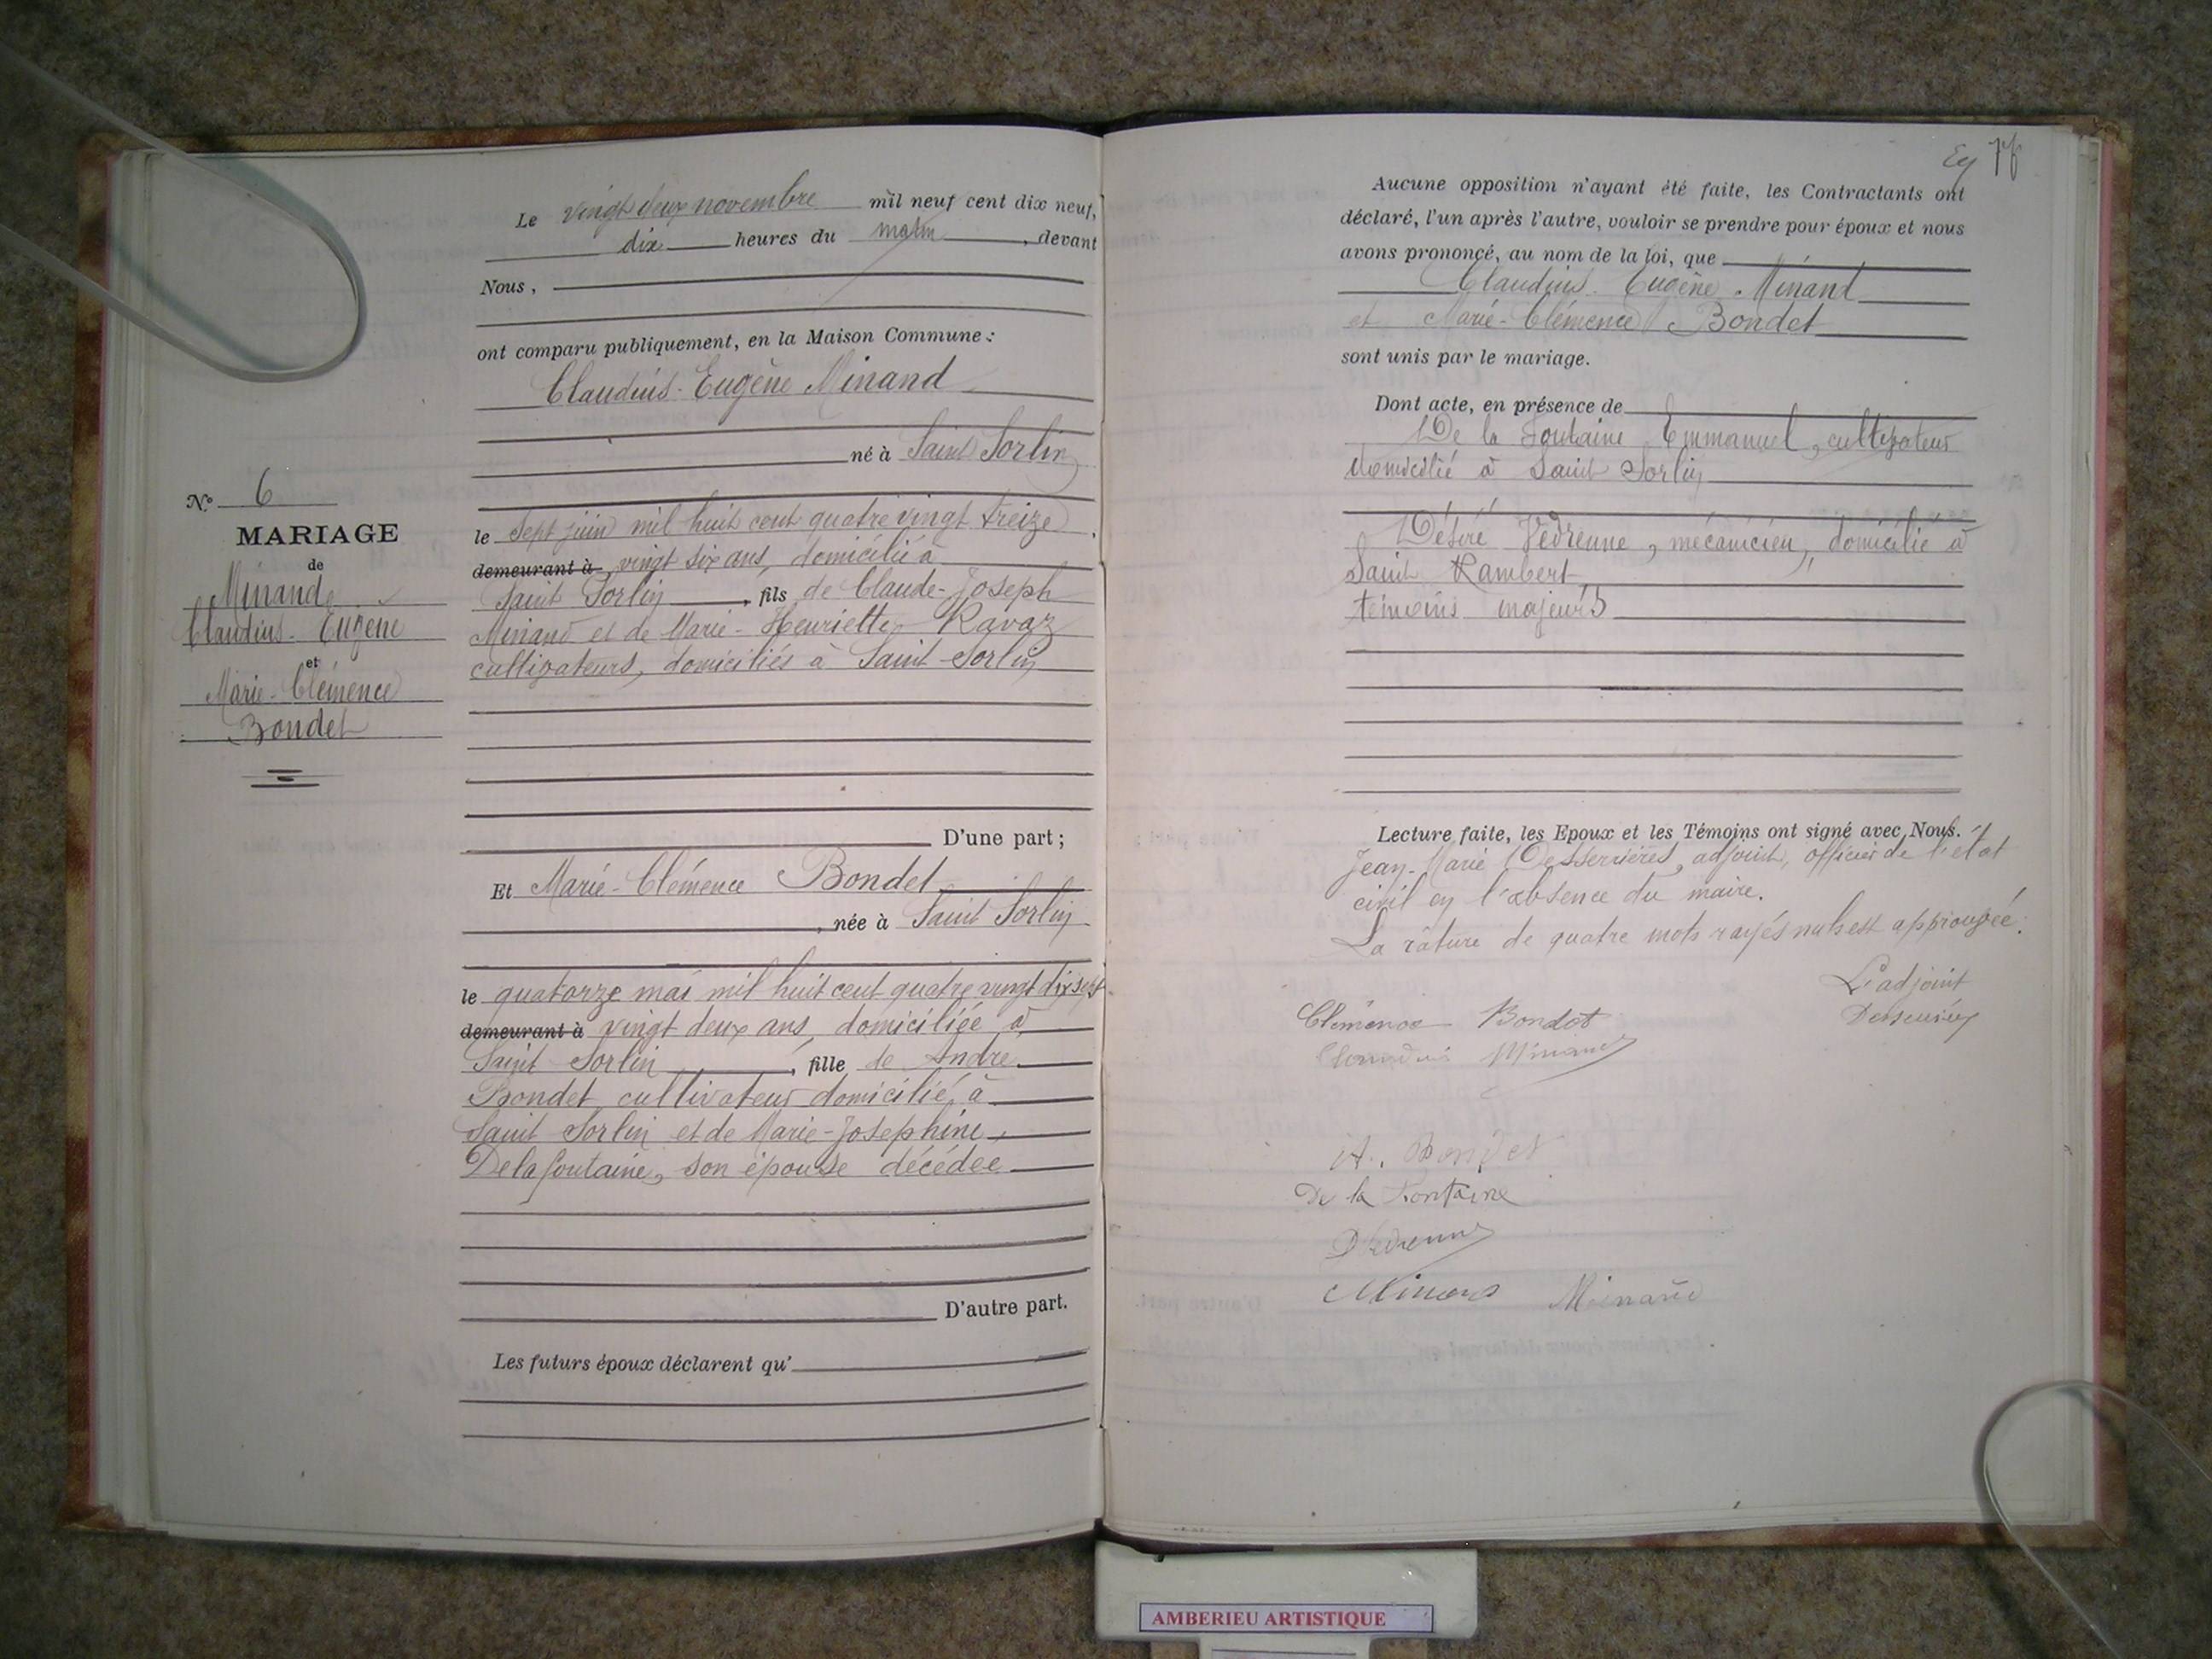 Le vingt deux novembre mil neuf cent dix neuf,
dix heures du matin, devant
Nous,
ont comparu publiquement, en la Maison Commune :
Claudius-Eugène Minand
né à Saint Sorlin
le sept juin mil huit cent quatre vingt treize,
demeurant à vingt six ans, domicilié à
Saint Sorlin, fils de Claude-Joseph
Minand et de Marie-Henriette Ravaz
cultivateurs, domiciliés à Saint-Sorlin
D'une part ;
Et Marie-Clémence Bondet
, née à Saint Sorlin
le quatorze mai mil huit cent quatre vingt dix sept
demeurant à vingt deux ans, domiciliée à
Saint Sorlin, fille de André
Bondet cultivateur domicilié à
Saint Sorlin et de Marie-Josephine
Delafontaine, son épouse décédée
D'autre part.
Les futurs époux déclarent qu'
No 6
MARIAGE
de
Minand
Claudius-Eugène
et
Marie-Clémence
Bondet
76
Aucune opposition n'ayant été faite, les Contractants ont
déclaré, l'un après l'autre, vouloir se prendre pour époux et nous
avons prononcé, au nom de la loi, que
Claudius-Eugène Minand
et Marie-Clémence Bondet
sont unis par le mariage.
Dont acte, en présence de
De la Fontaine Emmanuel, cultivateur
domicilié à Saint Sorlin
Désiré Védrenne, mécanicien, domicilié à
Saint Rambert
témoins majeurs
Lecture faite, les Epoux et les Témoins ont signé avec Nous.
Jean-Marie Desserrières, adjoint, officier de l'état
civil en l'absence du maire.
La râture de quatre mots rayés nuls est approuvée.
L'adjoint
Clémence Bondet
Claudius Minand
A. Bondet
De la Fontaine
Minand Minand
AMBERIEU ARTISTIQUE